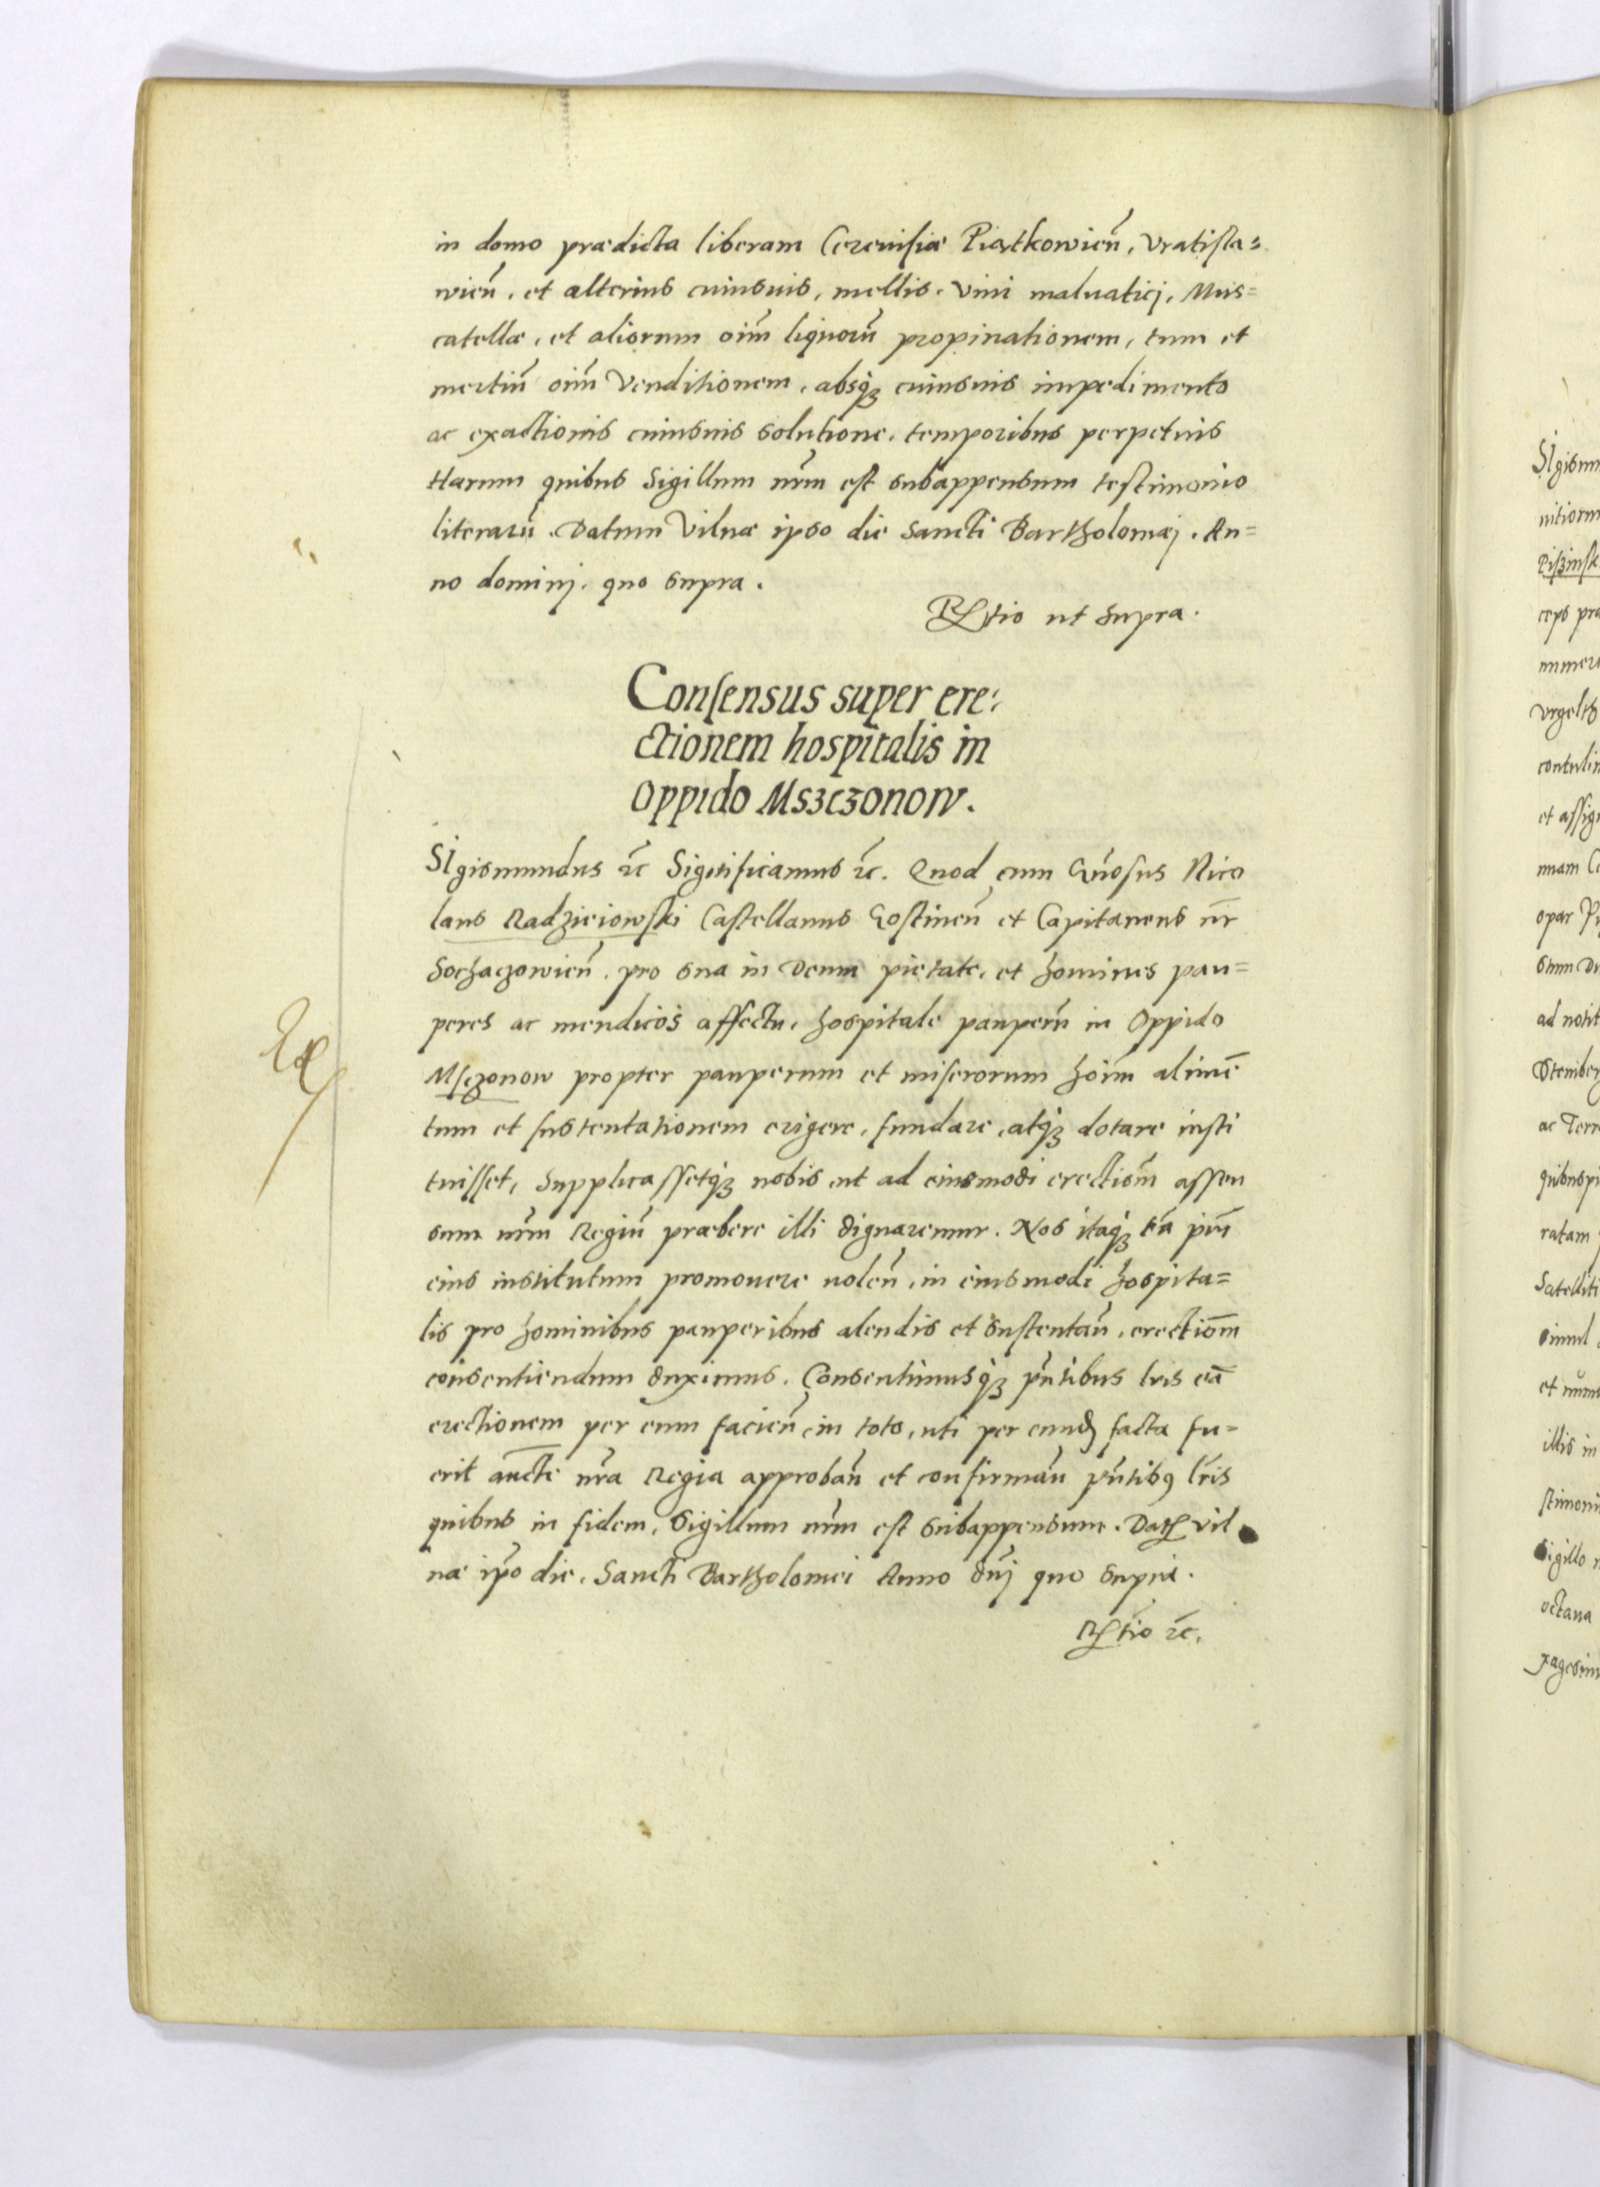 in domo prædicta liberam Cerevisiæ Piątkowien̄, Vratisla=
wien̄. et alterius cuiusvis, mellis. Vini malvaticj, Mus=
catellæ, et aliorum oīm liquorū propinationem, tum et
mertiū oīm Venditionem, absq3 cuiusvis impedimento
ac exactionis cuiusvis solutione, temporibus perpetuis
Harum quibus Sigillum nr̄m est subappensum testimonio
literarū. Datum Vilnæ ipso die Sancti Bartholomæj. An=
no dominj. quo supra.
Rtio ut supra.
Consensus super ere=
ctionem hospitalis in
Oppido Mszczonow.
SIgismundus ec̄ Significamus ec̄. Quod cum Gn̄osus Nico
laus Radzieiowski Castellanus Gostinen̄ et Capitaneus nr̄
Sochaczowien̄. pro sua in Deum pietate, et homines pau=
peres ac mendicos affectu, hospitale pauperū in Oppido
Msczonow propter pauperum et miserorum hoīm alimē
tum et sustentationem erigere, fundare, atq3 dotare insti
tuisset, Supplicassetq3 nobis ut ad eiusmodi erectiōm assen
sum nr̄m Regiū præbere illi dignaremur. Nos itaq3 tā piū
eius institutum promovere volen̄, in eiusmodi hospita=
lis pro hominibus pauperibus alendis et sustentan̄. erectiōm
consentiendum duximus. Consentimusq3 pn̄tibus lris eā
erectionem per eum facien̄, in toto, uti per eund facta fu=
erit auc̄te nr̄a Regia approban̄ et confirman̄ pn̄tibus lr̄is
quibus in fidem, Sigillum nr̄m est subappensum. Dat Vil
næ ip̄o die. Sancti Bartholomei Anno dn̄j quo supra.
Rtio ec̄.